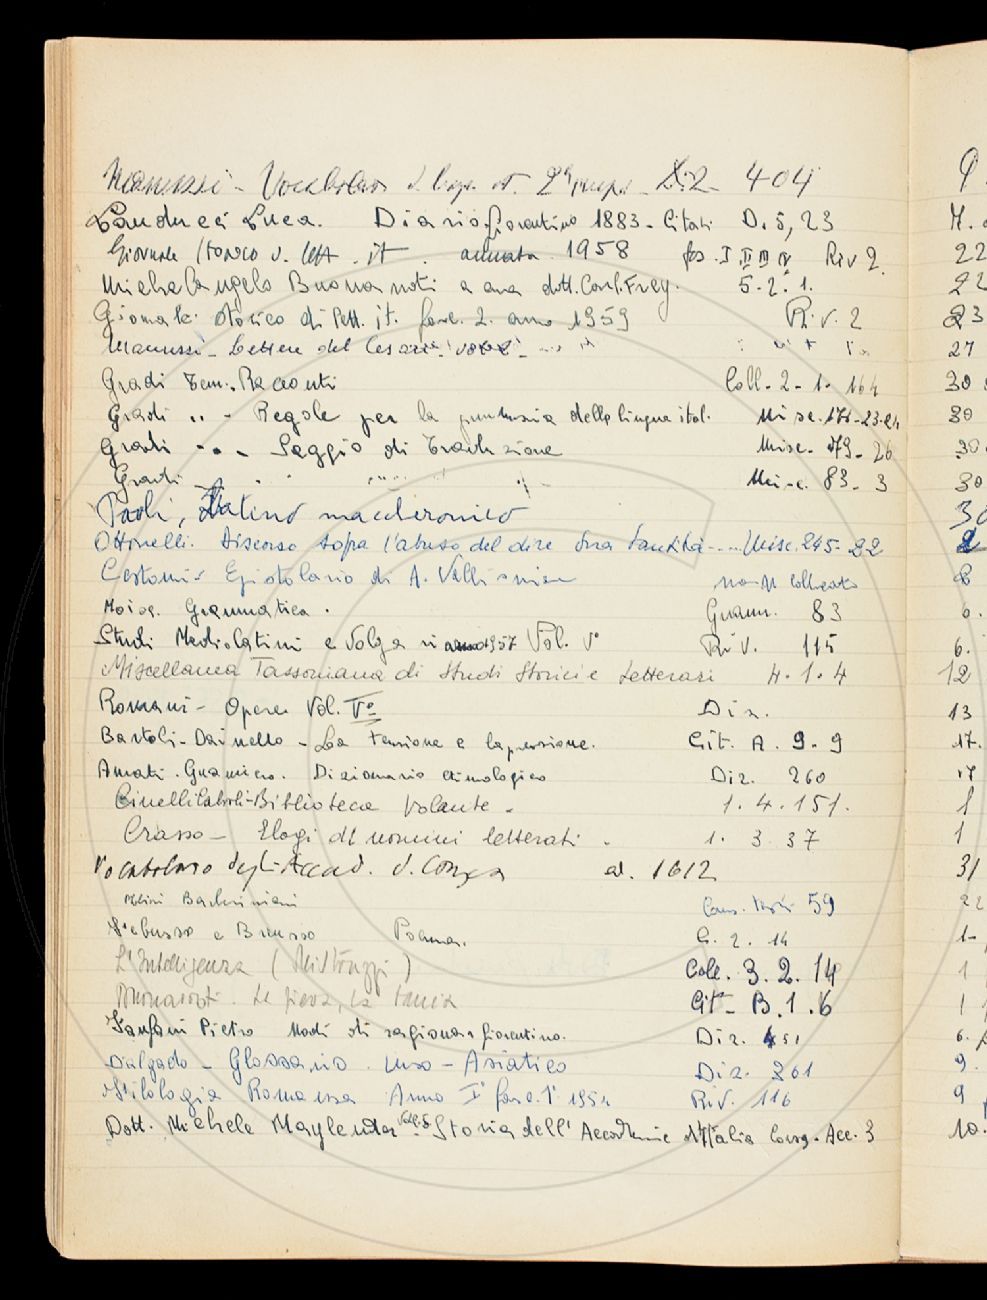 Manuzzi - Vocabolario d. ling. it. 2ª 404
Landucci Luca. Diario fiorentino 1883 - Citati D. 5, 23 M.
Giornale storico d. lett. it. annata 1958 fas. I II III IV Riv 2. 22
Michelangelo Buonarroti a cura dott. Carl. Frey. 5. 2. 1. 22
Giornale storico di lett. it. fasc. 2. anno 1959 Riv. 2 23
Manuzzi - Lettere del Cesari 27
Gradi Tem. Racconti Coll. 2 - 1. 164 30
Gradi " - Regole per la pronunzia della lingua ital. Misc. 171-23-24 30
Gradi " - Saggio di Traduzione Misc. 79 - 26 30
Gradi Misc. 83 - 3 30
Paoli, Latino maccheronico 30
Ottonelli. Discorso sopra l'abuso del dire Sua Santità .... Misc. 245-22 2
Cestoni - Epistolario di A. Vallisnieri non collocato
Grammatica. Gramm. 83 6.
Studi Mediolatini e Volgari anno 1957 Vol. V° Riv. 115 6.
Miscellanea Tassoniana di Studi Storici e Letterari H. 1. 4 12
Romani - Opere Vol. V° Diz. 13
Bartoli - Dainello - La Tensione e la pressione. Cit. A. 9. 9 17.
Amati. Guarniero. Dizionario etimologico Diz. 260 17
Cinelli Calvoli - Biblioteca Volante - 1. 4. 151. 1
Crasso - Elogi di uomini letterati. 1. 3. 37 1
Vocabolario degli Accad. d. Crusca ed. 1612 31
Barberiniani 59 22
Febusso e Breusso Poema. C. 2. 14 1-
L'Intelligenza (Mistruzzi) Coll. 3. 2. 14 1
Buonarroti. La fiera, la Tancia Cit - B. 1. 6 1
Fanfani Pietro Modi di ragionare fiorentino. Diz. 451 6.
Dalgado - Glossario Luso - Asiatico Diz. 261 9.
Filologia Romanza Anno I° fasc. 1° 1954 Riv. 116 9
Dott. Michele Maylender Vol. 5° Storia dell'Accademie d'Italia Cons. Acc. 3 10.